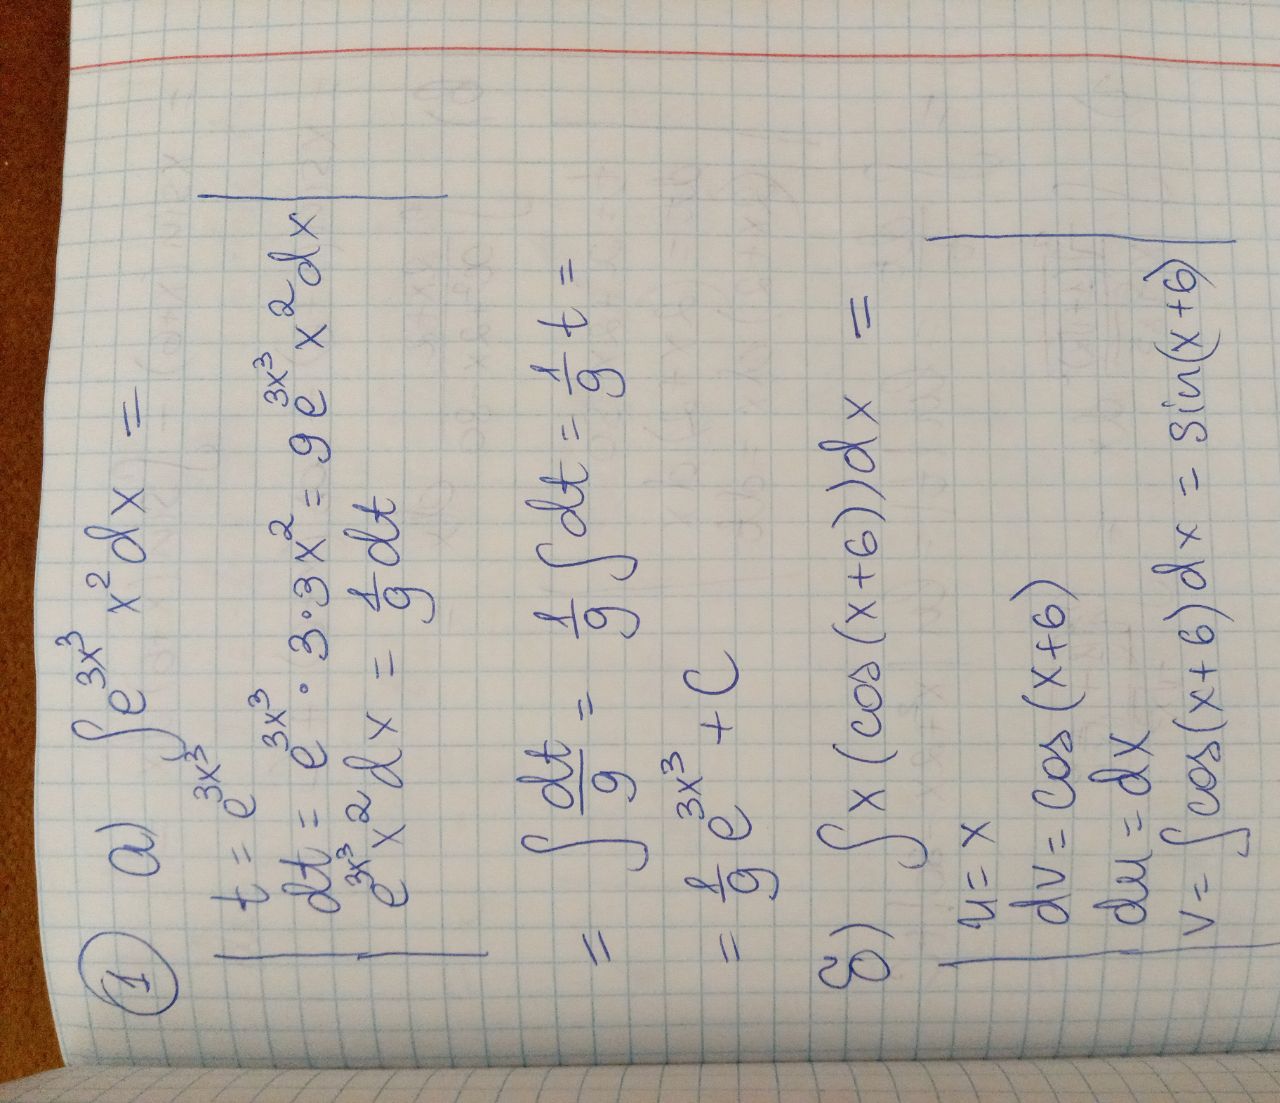 ① а) ∫e^{3x^3} x^2 dx =
t = e^{3x^3}
dt = e^{3x^3} · 3·3x^2 = 9e^{3x^3} x^2 dx
e^{3x^3} x^2 dx = 1/9 dt
= ∫ dt/9 = 1/9 ∫ dt = 1/9 t =
= 1/9 e^{3x^3} + C
б) ∫x(cos(x+6))dx =
u = x
dv = cos(x+6)
du = dx
v = ∫cos(x+6)dx = sin(x+6)